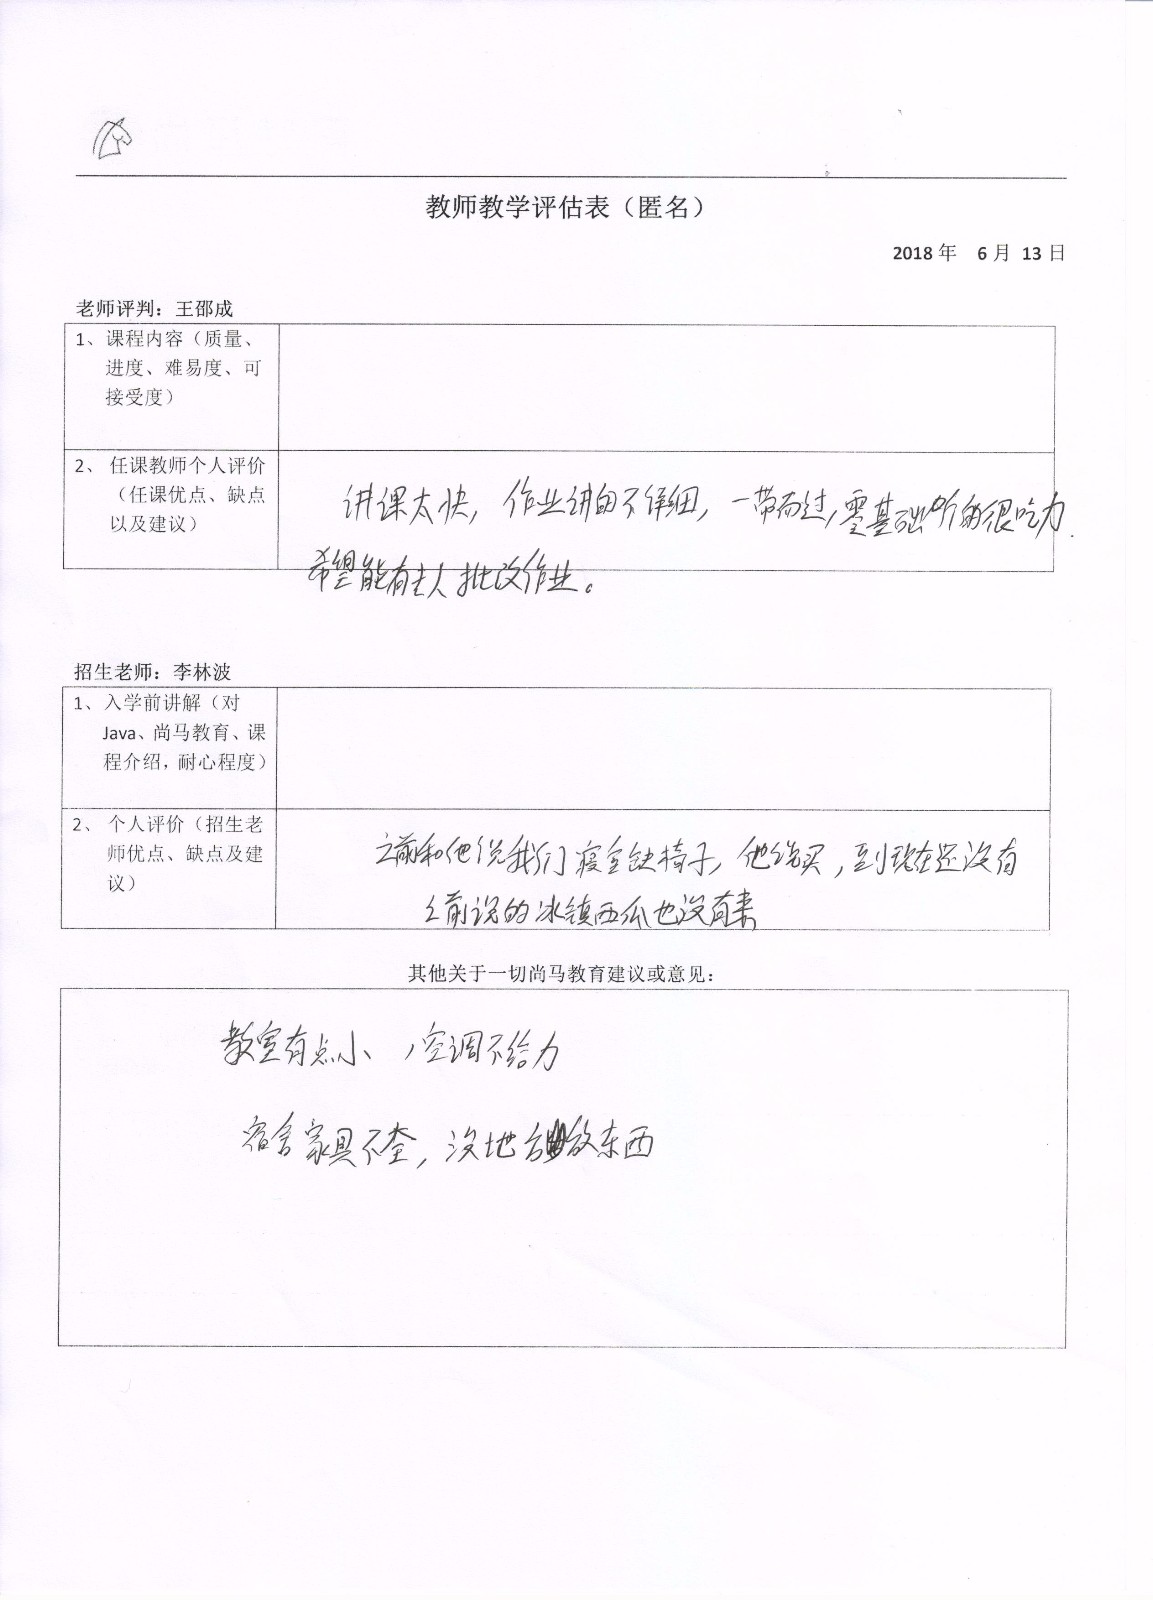 教师教学评估表（匿名）
2018 年 6 月 13 日
老师评判：王邵成
1、课程内容（质量、
进度、难易度、可
接受度）
2、 任课教师个人评价
（任课优点、缺点
以及建议）
讲课太快，作业讲的不详细，一带而过，零基础听的很吃力.
希望能有专人批改作业。
招生老师：李林波
1、入学前讲解（对
Java、尚马教育、课
程介绍，耐心程度）
2、 个人评价（招生老
师优点、缺点及建
议）
之前和他说我们寝室缺椅子，他说买，到现在还没有
之前说的冰镇西瓜也没有来
其他关于一切尚马教育建议或意见：
教室有点小 ，空调不给力
宿舍家具不全，没地方放东西